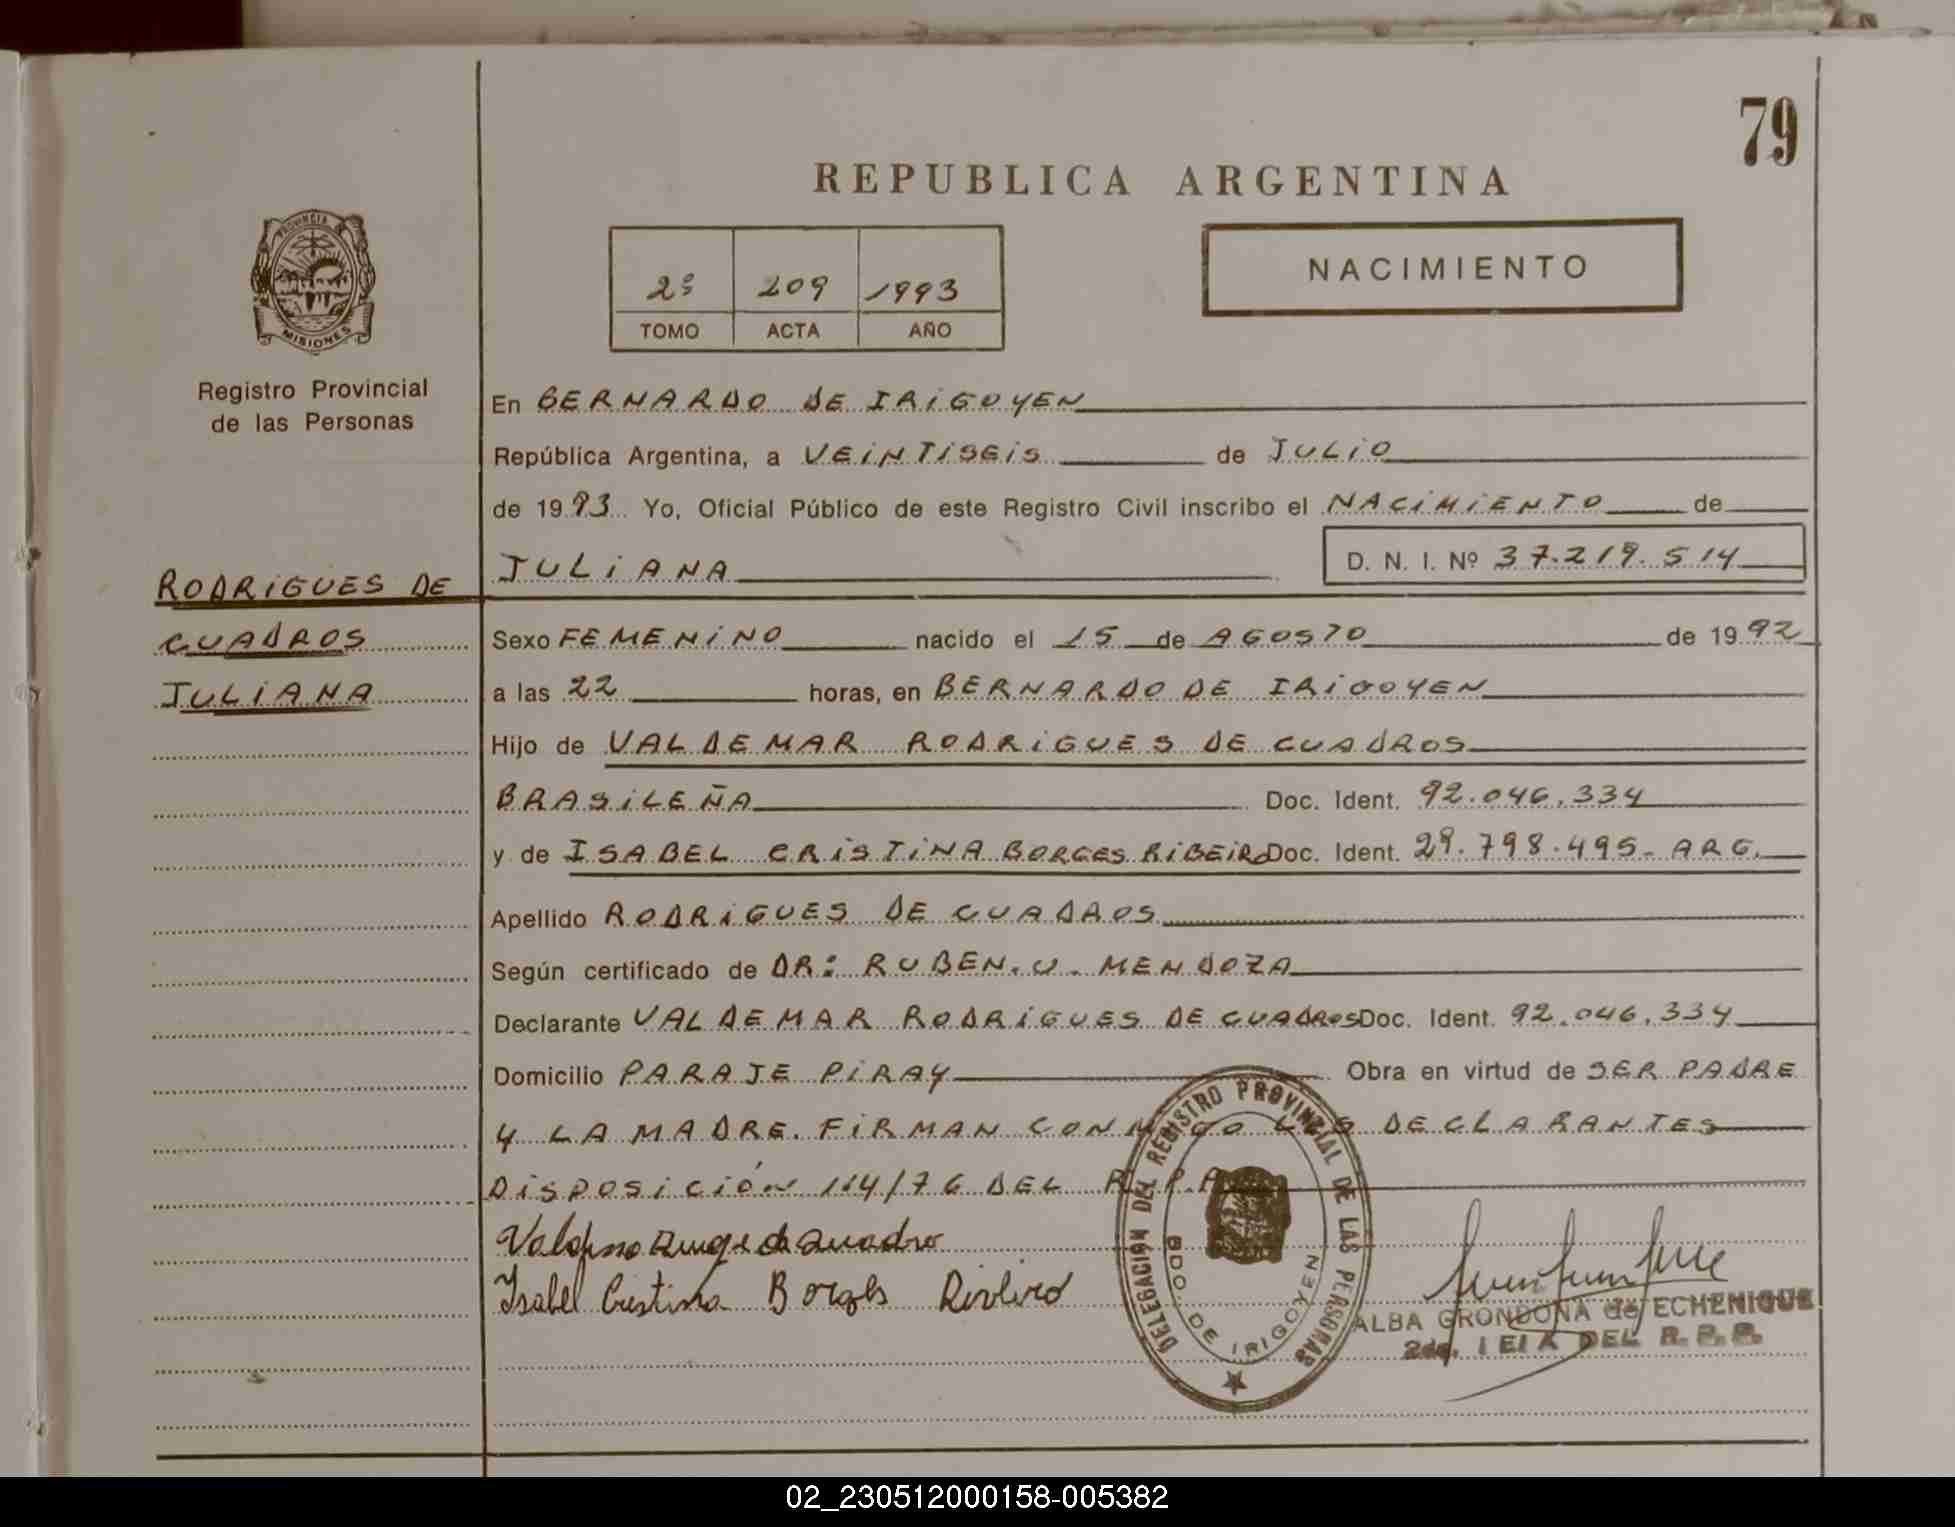 79
REPUBLICA ARGENTINA
PROVINCIA
MISIONES
Registro Provincial
de las Personas
2º 209 1993
TOMO ACTA AÑO
NACIMIENTO
En BERNARDO DE IRIGOYEN
República Argentina, a VEINTISEIS de JULIO
de 1993 Yo, Oficial Público de este Registro Civil inscribo el NACIMIENTO de
JULIANA D. N. I. Nº 37.219.514
RODRIGUES DE
CUADROS
JULIANA
Sexo FEMENINO nacido el 15 de AGOSTO de 1992
a las 22 horas, en BERNARDO DE IRIGOYEN
Hijo de VALDEMAR RODRIGUES DE CUADROS
BRASILEÑA Doc. Ident. 92.046.334
y de ISABEL CRISTINA BORGES RIBEIRO Doc. Ident. 29.798.495- ARG.
Apellido RODRIGUES DE CUADROS
Según certificado de DR: RUBEN. U. MENDOZA
Declarante VALDEMAR RODRIGUES DE CUADROS Doc. Ident. 92.046.334
Domicilio PARAJE PIRAY Obra en virtud de SER PADRE
Y LA MADRE. FIRMAN CONMIGO LOS DECLARANTES
DISPOSICIÓN 114/76 DEL R. P.
DELEGACION DEL REGISTRO PROVINCIAL DE LAS PERSONAS
BDO. DE IRIGOYEN
Isabel Cristina Borges
ALBA GRONDONA de ECHENIQUE
DEL R. P. P.
02_230512000158-005382